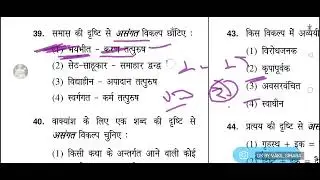 39. समास की दृष्टि से असंगत विकल्प छाँटिए :
(1) भयभीत - करण तत्पुरुष
(2) सेठ-साहूकार - समाहार द्वन्द्व
(3) विद्याहीन - अपादान तत्पुरुष
(4) स्वर्गगत - कर्म तत्पुरुष
40. वाक्यांश के लिए एक शब्द की दृष्टि से
असंगत विकल्प चुनिए :
(1) किसी कथा के अन्तर्गत आने वाली कोई
43. किस विकल्प में अव्ययी
(1) विरोधजनक
(2) कृपापूर्वक
(3) अवसरवंचित
(4) स्वाधीन
44. प्रत्यय की दृष्टि से असंग
(1) गृहस्थ + इक =